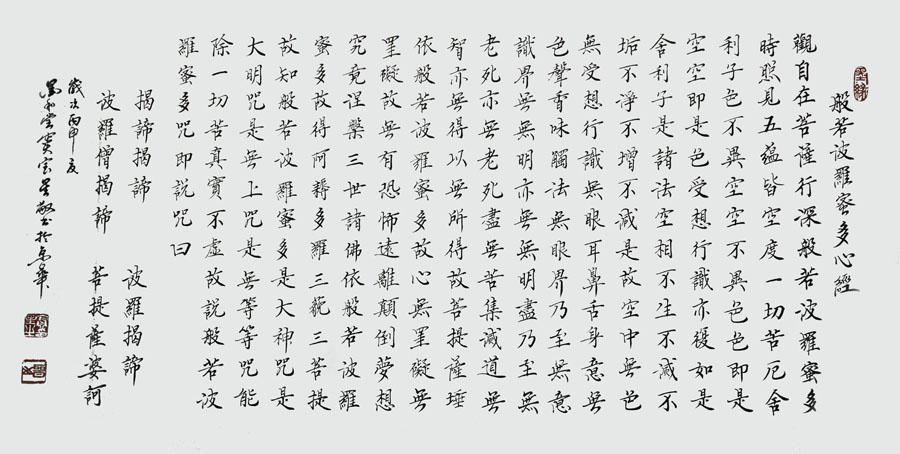 般若波羅蜜多心經
觀自在菩薩行深般若波羅蜜多
時照見五蘊皆空度一切苦厄舍
利子色不異空空不異色色即是
空空即是色受想行識亦復如是
舍利子是諸法空相不生不滅不
垢不淨不增不減是故空中無色
無受想行識無眼耳鼻舌身意無
色聲香味觸法無眼界乃至無意
識界無無明亦無無明盡乃至無
老死亦無老死盡無苦集滅道無
智亦無得以無所得故菩提薩埵
依般若波羅蜜多故心無罣礙無
罣礙故無有恐怖遠離顛倒夢想
究竟涅槃三世諸佛依般若波羅
蜜多故得阿耨多羅三藐三菩提
故知般若波羅蜜多是大神咒是
大明咒是無上咒是無等等咒能
除一切苦真實不虛故說般若波
羅蜜多咒即說咒曰
揭諦揭諦 波羅揭諦
波羅僧揭諦 菩提薩婆訶
歲次丙申夏
敬書於京華